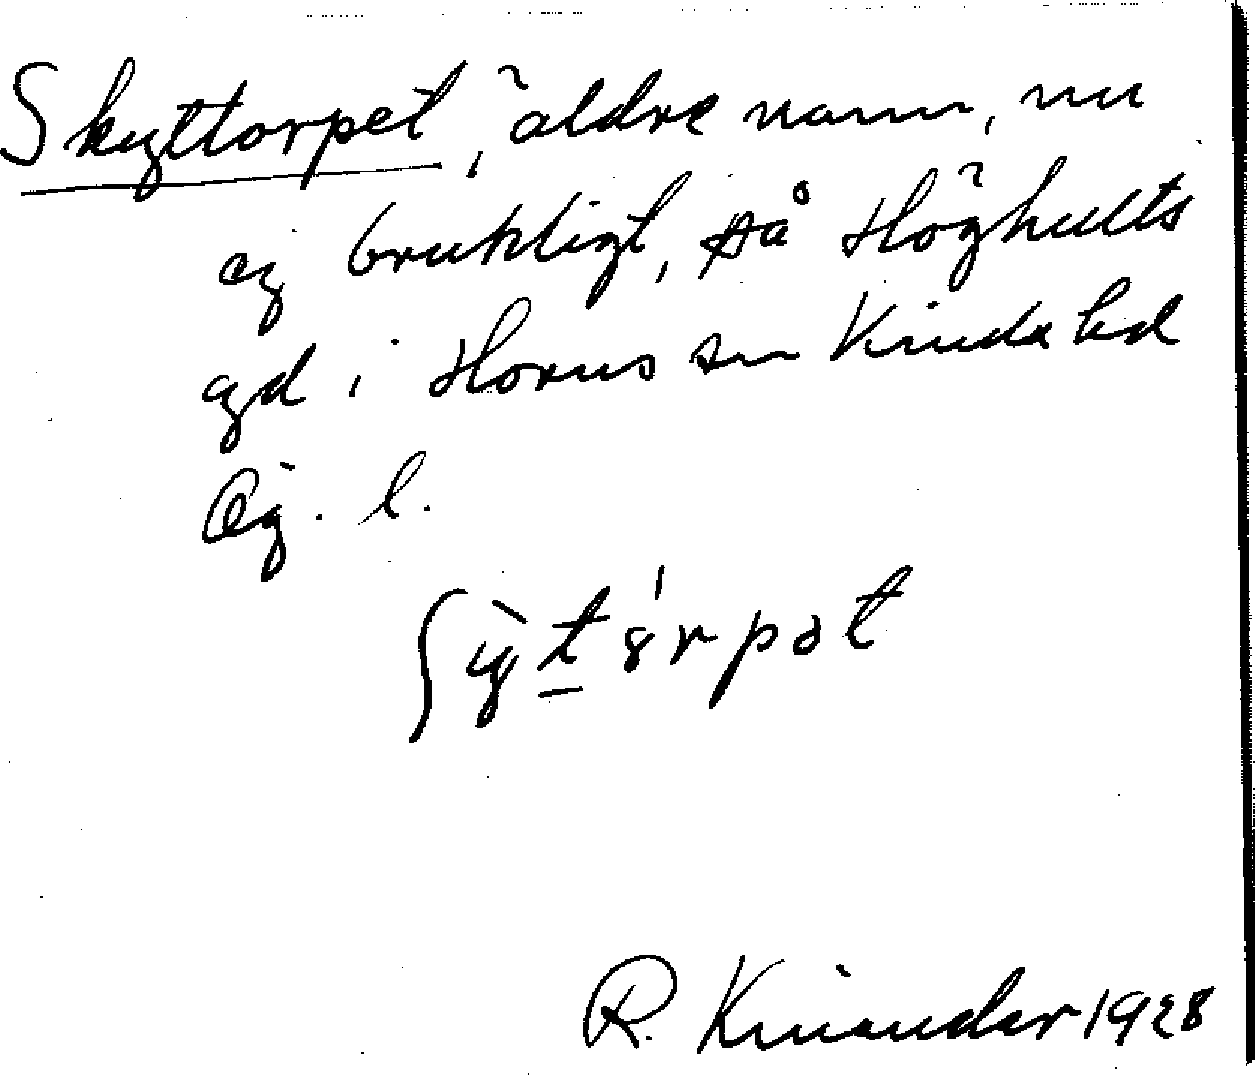 Skyttorpet, äldre namn, nu
ej brukligt, på Höghults
gd i Horns sn Kinda hd
Ög. l.
ʃỳt̲ȣ́rpət
R. Kinander 1928